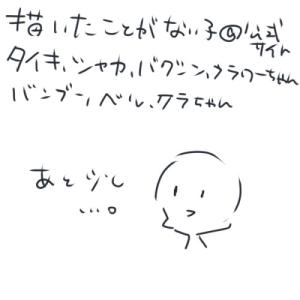 描いたことがない子@公式サイト
タイキ、シャカ、バクシン、フラワーちゃん
バンブー、ベル、クラちゃん
あと少し
…。